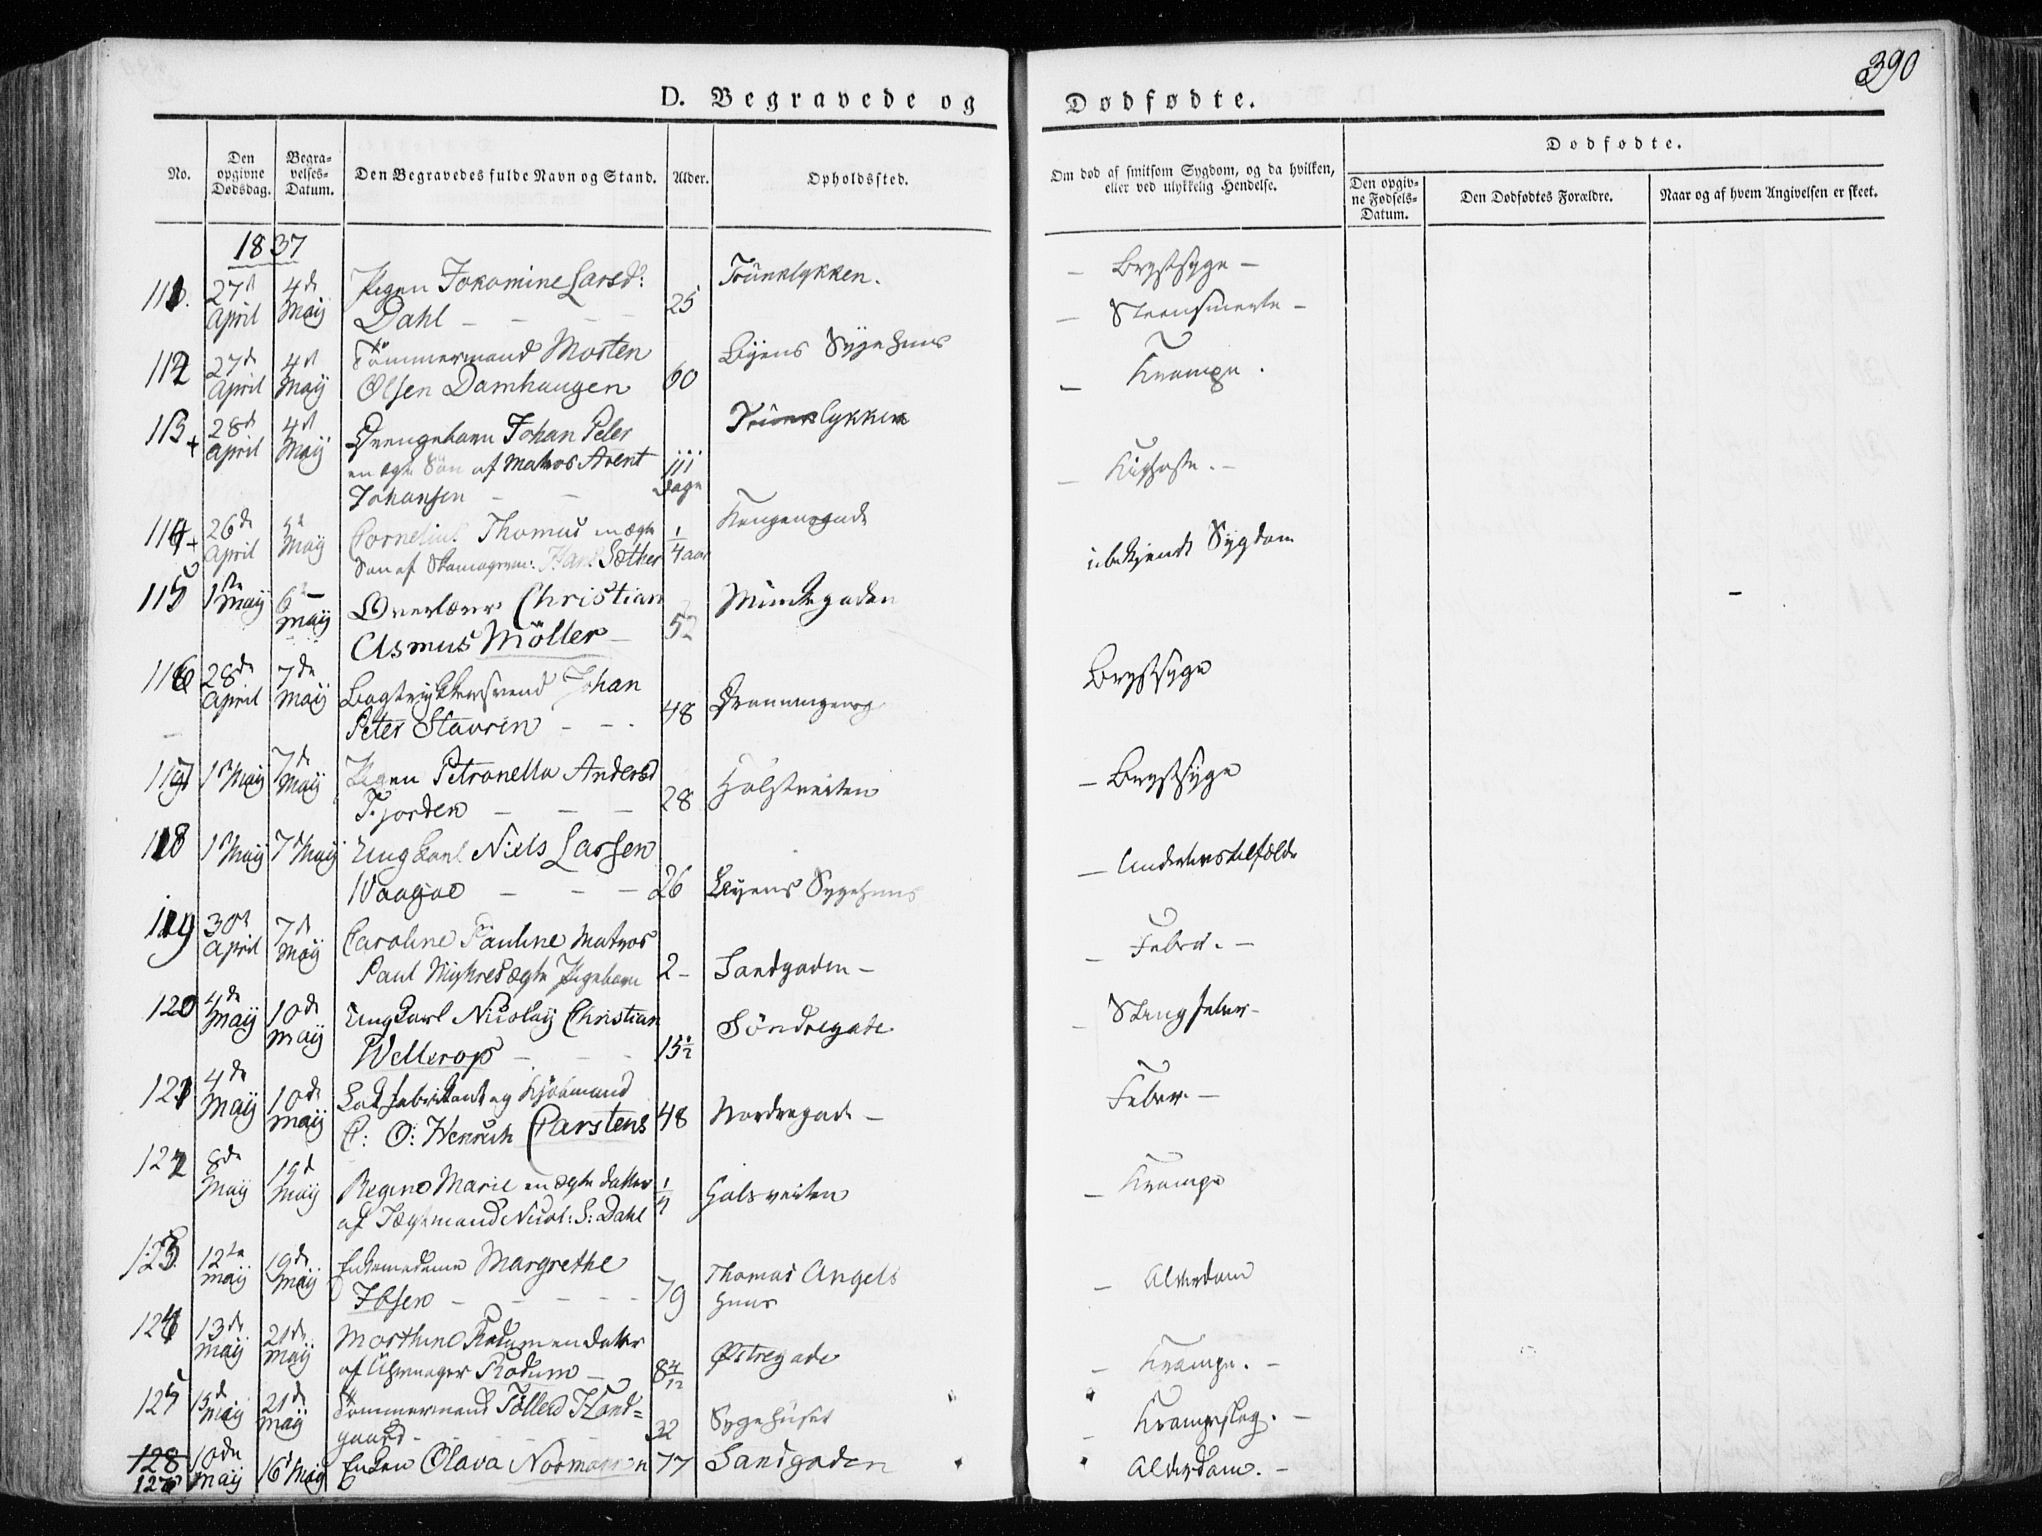 390
D. Begravede og Dødfødte.
No.
Den opgivne Dødsdag.
Begravelses-Datum.
Den Begravedes fulde Navn og Stand.
Alder.
Opholdssted.
Om død af smitsom Sygdom, og da hvilken, eller ved ulykkelig Hendelse.
Dødfødte.
Den opgivne Fødsels-Datum.
Den Dødfødtes Forældre.
Naar og af hvem Angivelsen er skeet.
1837
111. 27d April 4de Maij Pigen Jokomine Larsd: Dahl 25 – Brystsyge –
– Steensmerte –
112 27de April 4d Maij Tømmermand Morten Olsen Damhaugen 60 Byens Sygehuus – Krampe.
113 + 28de April 4d Maij Drengebarn Johan Peter
en ægte Søn af Matros Arent Johansen iii Dage lykken – Kighoste. –
114 + 26de April Maij Cornelius Thomas en ægte
Søn af Sæther 1/4 aar Kongensgade ubekjendt Sygdom
115 1ste Maij 6te Maij Overlærer Christian
Asmus Möller 52 Munkegaden
116 28de April 7de Maij Bogtrykkersvend Johan
Peter Stavrin 48 Brystsyge
117 1st Maij 7d Maij Pigen Petronella Andersd
Fjorden 28 – Brystsyge
118 1st Maij 7d Maij Ungkarl Niels Larsen
Waagoe 26 Byens Sygehuus –
119 30te April 7d Maij Caroline Pauline Matros
Paul ægte Pigebarn 2 – Sandgaden – – Feber. –
120 4de Maij 10de Maij Ungkarl Nicolaij Christian
Wellerop 15½ Söndregade – Feber –
121 4de Maij 10de Maij fabrikant og Kjøbmand
C: O: Henrich Carstens 48 Nordregade – Feber. –
122 8de Maij Maij Regine Marie en ægte datter
af Jægtmand Nicol: S: Dahl Holsveiten – Krampe
123 12te Maij 19de Maij Enkemadame Margrethe
Ibsen 79 Thomas Angels
Huus – Alderdom
124 13de Maij 21de Maij Morthine Rodum en datter
af Uhrmager Rodum 8 4/12 Østregade – Krampe. –
125 13d Maij 21de Maij Tømmermand Tollerd Hand=
gaard 32 Sygehuset – Krampeslag. –
128 127 10de Maij 16d Maij Enken Olava Normann 77 Sandgaden Alderdom. –